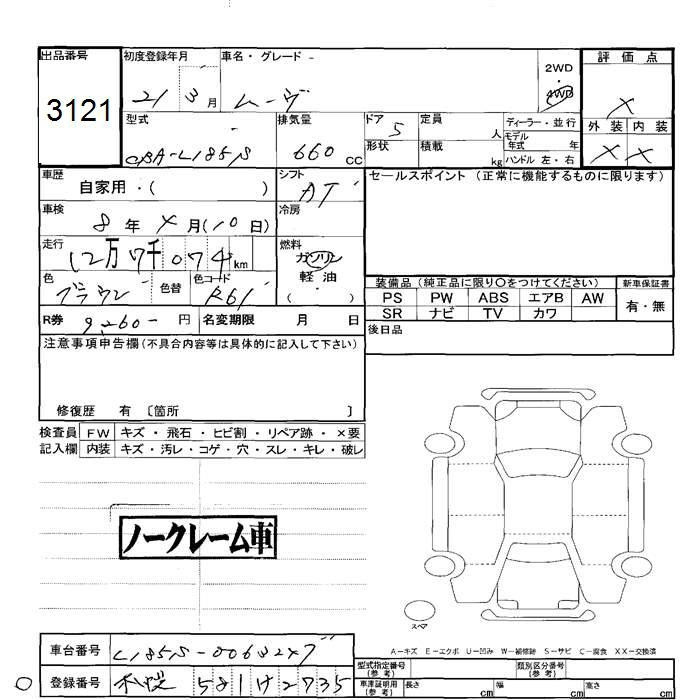 出品番号
3121
初度登録年月
21 3月
車名・グレード
ムーヴ
2WD
4WD
評価点
X
外装 内装
X X
型式
CBA-L185S
排気量
660 cc
ドア 5
形状
定員 人
積載 kg
ディーラー・並行
モデル年式 年
ハンドル 左・右
車歴
自家用・( )
シフト
AT
車検
8年 X月(10日)
冷房
走行
12万7千074km
燃料
ガソリン
軽油
( )
色
ブラウン
色替
色コード
R61
R券 9,260- 円
名変期限 月 日
セールスポイント (正常に機能するものに限ります)
装備品 (純正品に限り○をつけてください)
PS PW ABS エアB AW
SR ナビ TV カワ
新車保証書
有・無
後日品
注意事項申告欄(不具合内容等は具体的に記入して下さい)
修復歴 有 〔箇所 〕
検査員 FW キズ・飛石・ヒビ割・リペア跡・×要
記入欄 内装 キズ・汚レ・コゲ・穴・スレ・キレ・破レ
ノークレーム車
スペア
A-キズ E-エクボ U-凹み W-補修跡 S-サビ C-腐食 XX-交換済
車台番号
登録番号
581 2735
型式指定番号(参考)
類別区分番号(参考)
車庫証明用(参考) 長さ cm 幅 cm 高さ cm